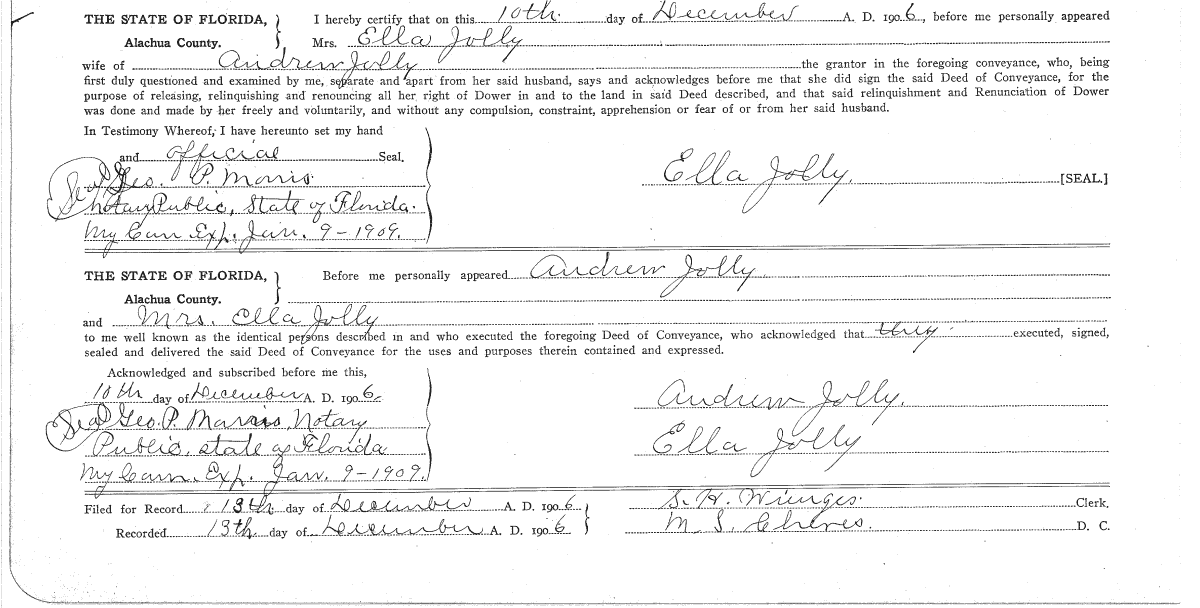 THE STATE OF FLORIDA, I hereby certify that on this 10th day of December A. D. 1906, before me personally appeared
Alachua County. Mrs. Ella Jolly
wife of Andrew Jolly the grantor in the foregoing conveyance, who, being
first duly questioned and examined by me, separate and apart from her said husband, says and acknowledges before me that she did sign the said Deed of Conveyance, for the
purpose of releasing, relinquishing and renouncing all her right of Dower in and to the land in said Deed described, and that said relinquishment and Renunciation of Dower
was done and made by her freely and voluntarily, and without any compulsion, constraint, apprehension or fear of or from her said husband.
In Testimony Whereof, I have hereunto set my hand
and official Seal.
Seal Geo. P. Morris
Notary Public, State of Florida.
My Com. Exp. Jan. 9-1909.
Ella Jolly. [SEAL.]
THE STATE OF FLORIDA, Before me personally appeared Andrew Jolly
Alachua County.
and Mrs. Ella Jolly
to me well known as the identical persons described in and who executed the foregoing Deed of Conveyance, who acknowledged that they executed, signed,
sealed and delivered the said Deed of Conveyance for the uses and purposes therein contained and expressed.
Acknowledged and subscribed before me this,
10th day of December A. D. 1906.
Seal Geo. P. Morris, Notary
Public, State of Florida
My Com. Exp. Jan. 9-1909.
Andrew Jolly.
Ella Jolly
Filed for Record 13th day of December A. D. 1906 S. H. Wienges. Clerk.
Recorded 13th day of December A. D. 1906 M. S. Cheves. D. C.